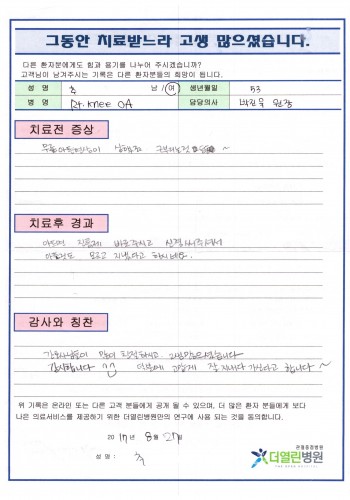 그동안 치료받느라 고생 많으셨습니다.
다른 환자분에게도 힘과 용기를 나누어 주시겠습니까?
고객님이 남겨주시는 기록은 다른 환자분들의 희망이 됩니다.
성 명 추 남/여 생년월일 53
병 명 Rt. knee OA 담당의사 박진욱 원장
치료전 증상
무릎
치료후 경과
아프면 진통제 바로주시고
지냈다고 하시네요.
감사와 칭찬
간호사님들이 많이 친절하시고, 고생많으셨습니다
감사합니다 ^^ 덕분에 잘 지내다 가신다고 합니다~
위 기록은 온라인 또는 다른 고객 분들에게 공개 될 수 있으며, 더 많은 환자 분들에게 보다
나은 의료서비스를 제공하기 위한 더열린병원만의 연구에 사용 되는 것을 동의합니다.
2017년 8월 27일
성 명 : 추
관절중점병원
더열린병원